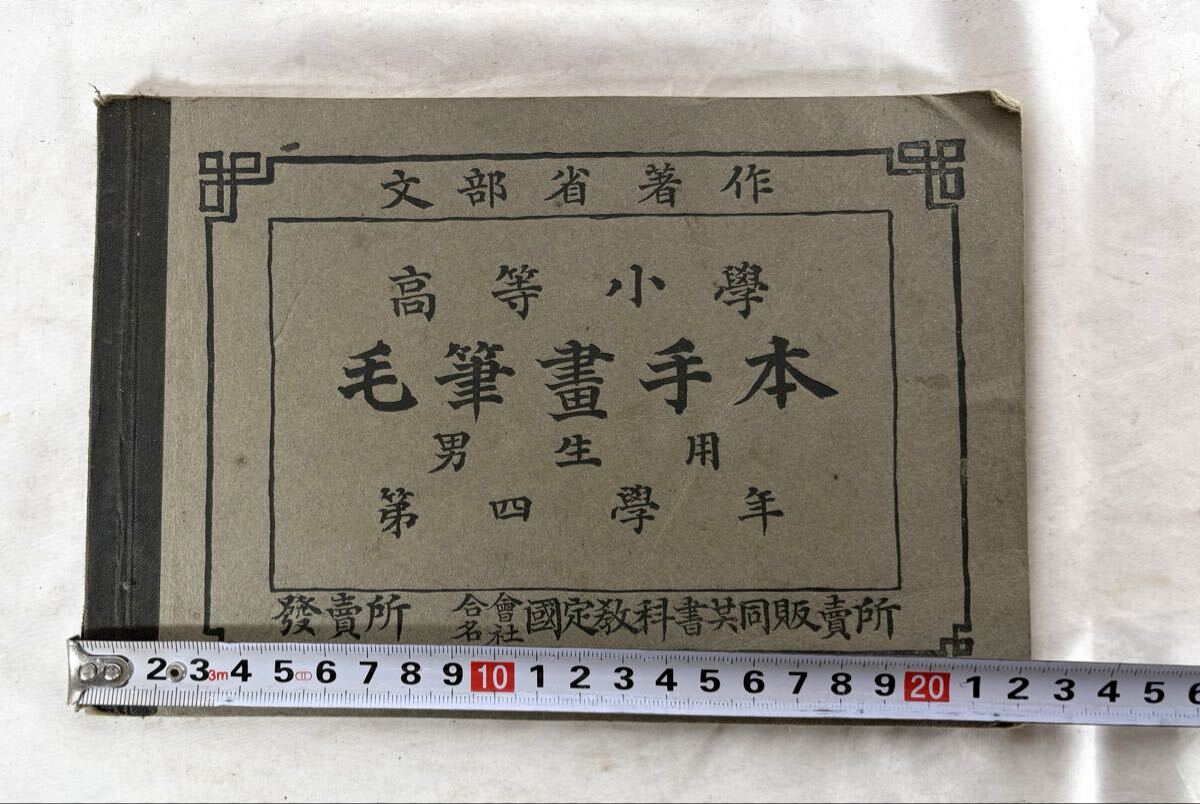 文部省著作
高等小學
毛筆畫手本
男生用
第四學年
發賣所 合名會社 國定教科書共同販賣所
2 3 3m 4 5 6 7 8 9 10 1 2 3 4 5 6 7 8 9 20 1 2 3 4 5 6